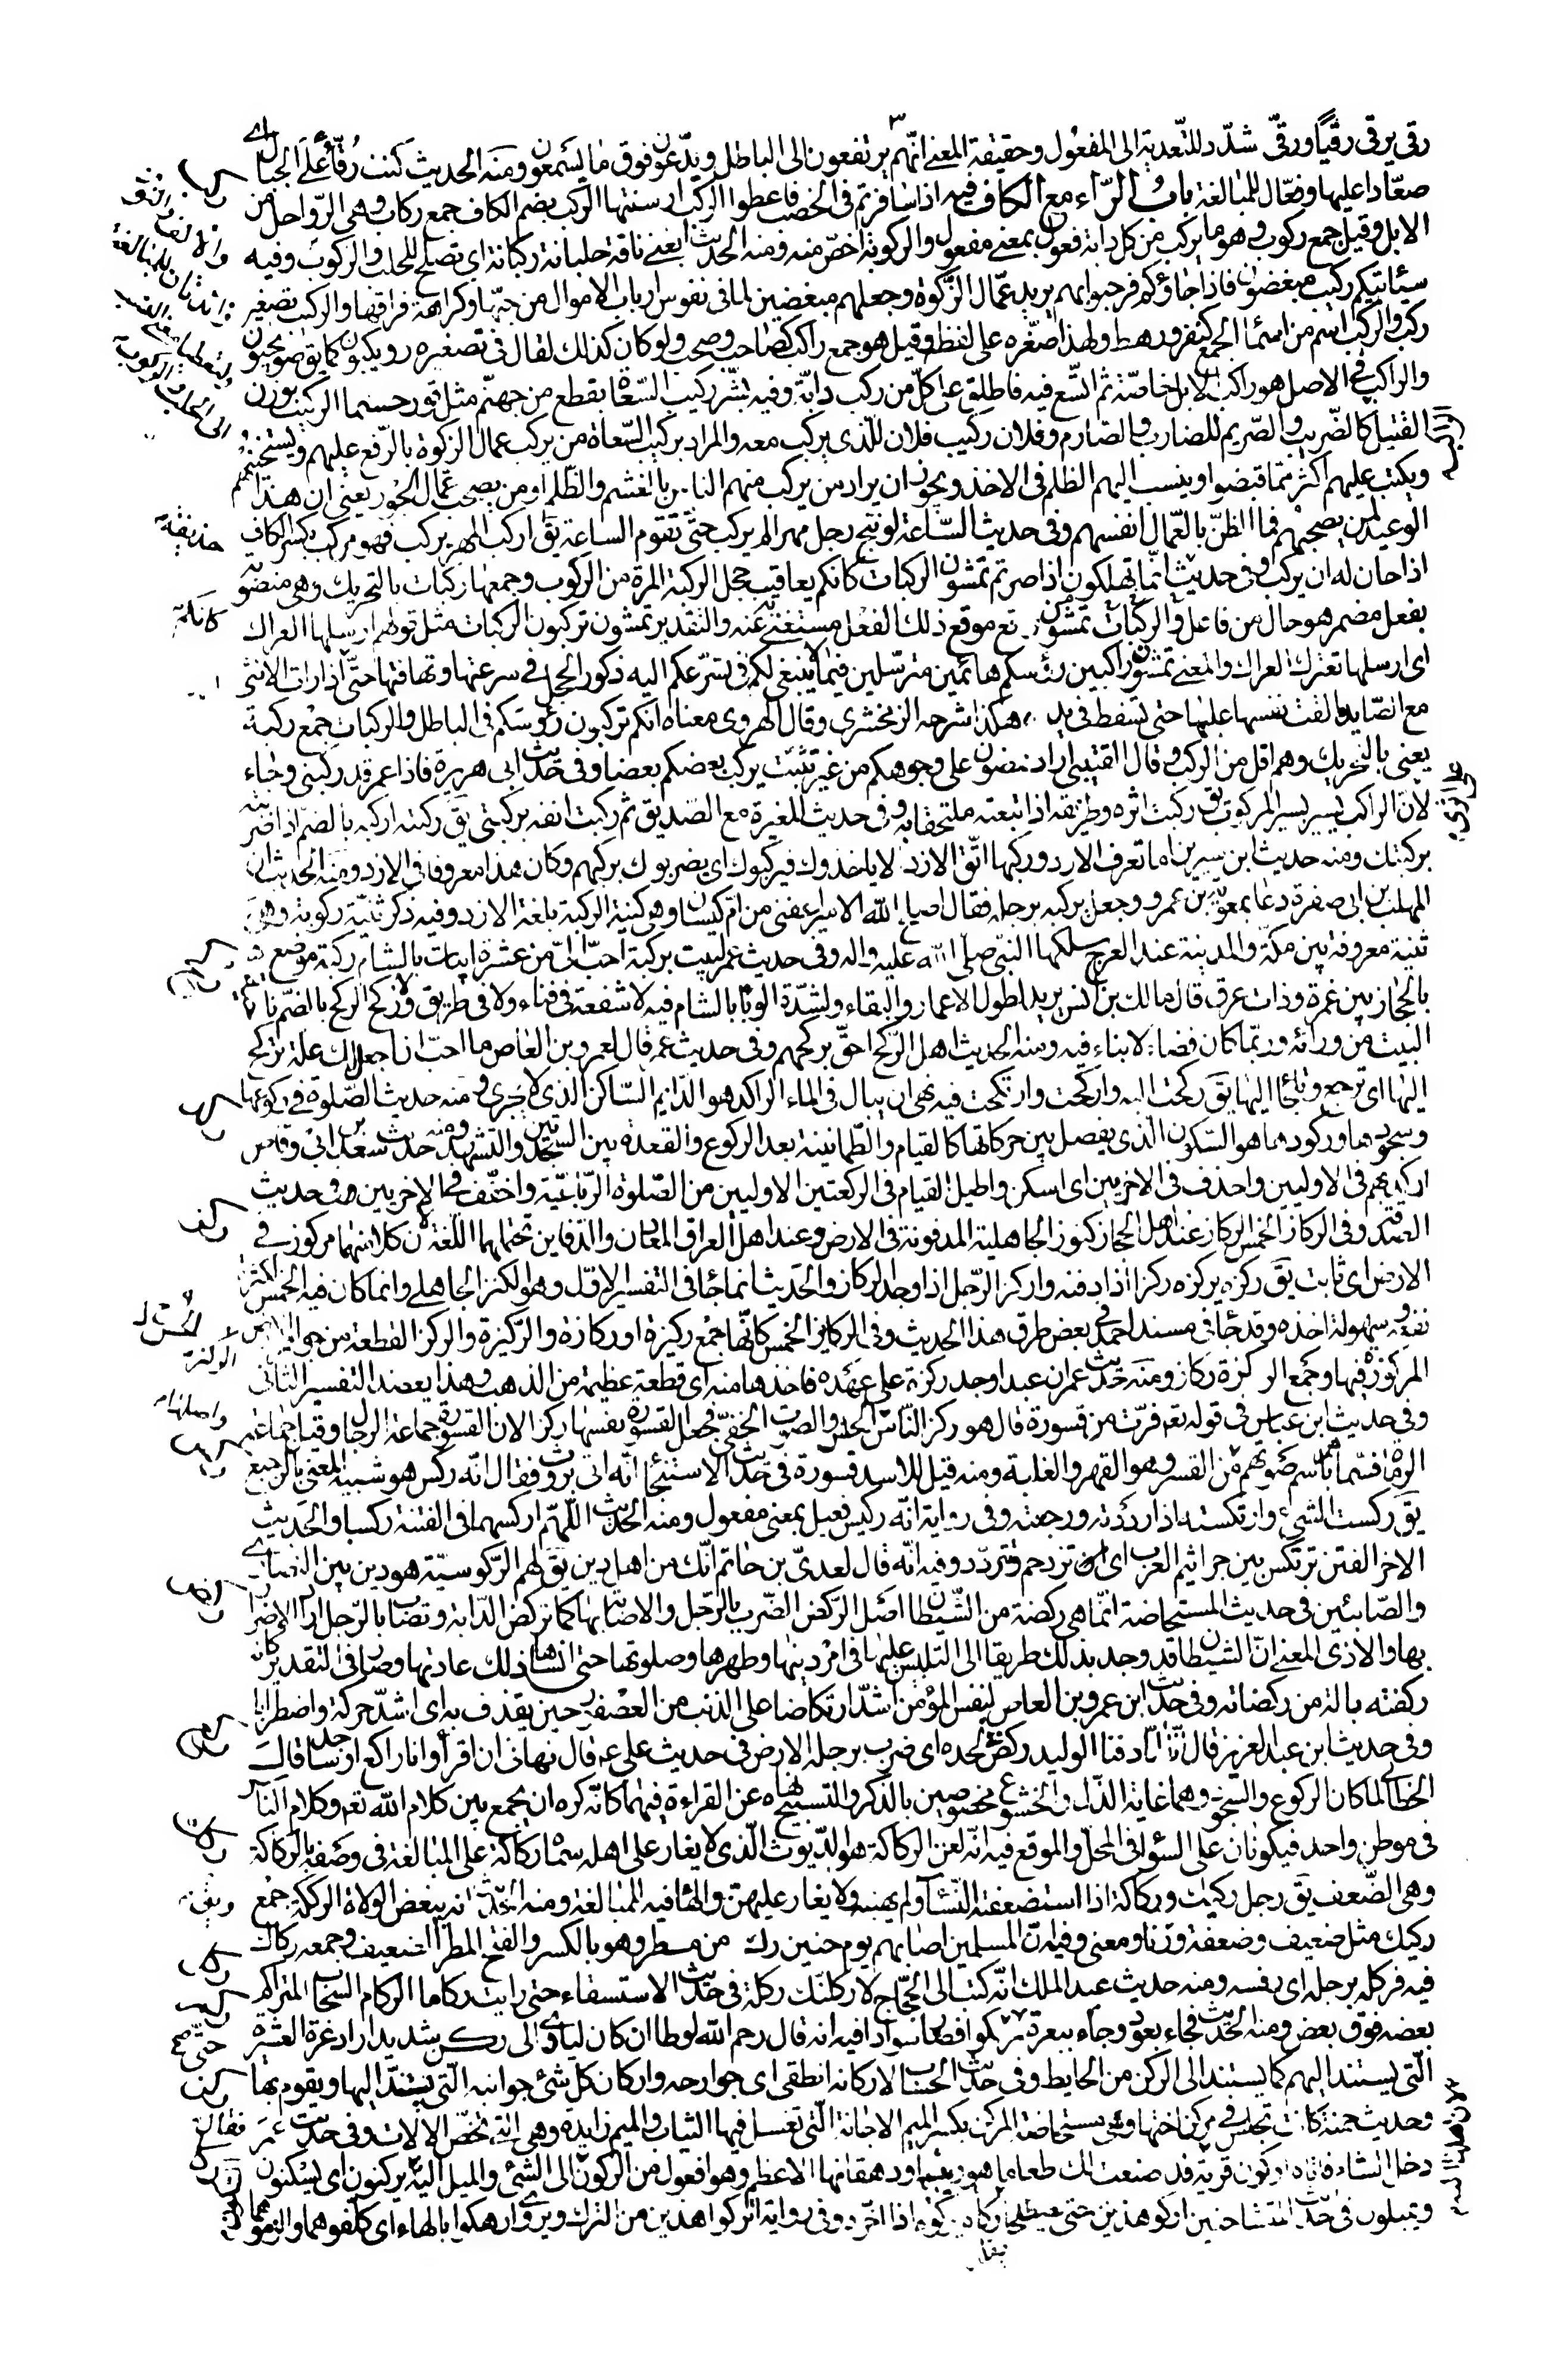 رقى يرقى رقيّا ورقّى شدّد للتّعدية الى المفعول وحقيقة المعنے انّهم يرتفعون الى الباطل ويدّعون فوق ما يسمعون ومنه الحديث كنت رقّاءً على الجبال اى
صعّادا عليها وفعّال للمبالغة باب الرّاء مع الكاف فيه اذا سافرتم فى الخصب فاعطوا الركب اسنتها الركب بضم الكاف جمع ركاب وهى الرّواحل من
الابل وقيل جمع ركوب وهو ما يركب من كل دابة فعول بمعنے مفعول والركوبة اخصّ منه ومنه الحديث ابغنے ناقة حلبانة ركبانة اى تصلح للحلب والركوب وفيه
سيأتيكم ركيب مبغضون فاذا جاؤكم فرحبوا بهم يريد عمّال الزّكوة وجعلهم مبغضين لما فى نفوس ارباب الاموال من حبّها وكراهة فراقها والركيب تصغير
ركب والركب اسم من اسماء الجمع كنفر ورهط ولهذا صغّره على لفظه وقيل هو جمع راكب كصاحب وصحب ولو كان كذلك لقال فى تصغيره رويكبون كما يق صويحبون
والراكب فى الاصل هو راكب الابل خاصّة ثم اتّسع فيه فاطلق على كلّ من ركب دابّة وفيه بشّر ركيب السّعاة بقطع من جهنّم مثل قور حسما الركيب بوزن
القتيل كالضّريب والصّريم للضارب والصّارم وفلان ركيب فلان للّذى يركب معه والمراد بركيب السّعاة من يركب عمال الزكوة بالرّفع عليهم ويستخينهم
ويكتب عليهم اكثر ممّا قبضوا وينسب اليهم الظلم فى الاخذ ويجوز ان يراد من يركب منهم الناس بالغشم والظّلم او من يصحب عمّال الجور يعنى ان هذا
الوعيد لمن يصحبهم فما الظنّ بالعمّال انفسهم وفى حديث السّاعة لو نتج رجل مهرا لم يركب حتّى تقوم الساعة يق اركب المهر يركب فهو مركب بكسر الكاف
اذا حان له ان يركب وفى حديث انّما تهلكون اذا صرتم تمشون الركبات كانكم يعاقيب حجل الركبة المرة من الركوب وجمعها ركبات بالتحريك وهى منصوبة
بفعل مضمر هو حال من فاعل والركبات تمشون موقع ذلك الفعل مستغنے به عنه والتقدير تمشون تركبون الركبات مثل قولهم ارسلها العراك
اى ارسلها تعترك العراك والمعنے تمشون راكبين رؤسكم هائمين مترسّلين فيما لا ينبغى لكم فى تسرّعكم اليه ذكور الحجل فى سرعتها وتهافتها حتّى اذا رات الانثى
مع الصّايد القت نفسها عليها حتى تسقط فى يده هكذا شرحه الزمخشرى وقال الهروى معناه انكم تركبون رؤسكم فى الباطل والركبات جمع ركبة
يعنى بالتحريك وهم اقل من الركب وقال القتيبى اراد تمضون على وجوهكم من غير تثبّت يركب بعضكم بعضا وفى حديث ابى هريرة فاذا عمر قد ركبنى وجاء
لانّ الراكب يسير بسير المركوب يق ركبت اثره وطريقه اذا تبعته ملتحقا به وفى حديث المغيرة مع الصّديق ثم ركبت انفه بركبتى يق ركبته اركبه بالضم اذا ضربته
بركبتك ومنه حديث ابن سيرين اما تعرف الازد وركبها اتّق الازد لا ياخذوك فيركبوك اى يضربوك بركبهم وكان هذا معروفا فى الازد ومنه الحديث ان
المهلب بن ابى صفرة دعا بمعوية بن عمرو وجعل يركبه برجله فقال اصلح الله الامير اعفنى من امّ كيسان وهو كنية الركبة بلغة الازد وفيه ذكر ثنيّة ركوبة وهى
ثنية معروفة بين مكّة والمدينة عند العرج سلكها النبّى صلّى الله عليه واله وفى حديث عمر لبيت بركبة احبّ الىّ من عشرة ابيات بالشام ركبة موضع
بالحجاز بين غمرة وذات عرق قال مالك بن انس يريد لطول الاعمار والبقاء ولشدّة الوبا بالشام فيه لا شفعة فى فناء ولا فى طريق ولا ركح الركح بالضّم ناحية
البيت من ورائه وربّما كان فضاء لا بناء فيه ومنه الحديث اهل الرّكح احقّ بركحهم وفى حديث عمر قال لعمرو بن العاص ما احبّ ان اجعل لك علة تركح
اليها اى ترجع وتلجأ اليها يق ركحت اليه واركحت وارتكحت فيه نهى ان يبال فى الماء الراكد هو الدّايم السّاكن الذى لا يجرى ومنه حديث الصّلوة فى ركوعها
وسجودها وركودها هو السّكون الّذى يفصل بين حركاتها كالقيام والطّمانينة بعد الركوع والقعدة بين السجدتين والتشهد ومنه حديث سعد بن ابى وقاص
اركد بهم فى الاوليين واحذف فى الاخريين اى اسكن واطيل القيام فى الركعتين الاوليين من الصّلوة الرّباعيّة واخفّف فى الاخريين وفى حديث
الصدقة وفى الركاز الخمس الركاز عند اهل الحجاز كنوز الجاهلية المدفونة فى الارض وعند اهل العراق المعادن والدّفاين تحتملهما اللّغة لان كلا منهما مركوز فى
الارض اى ثابت يق ركزه يركزه ركزا اذا دفنه واركز الرّجل اذا وجد الركاز والحديث انما جاء فى التفسير الاوّل وهو الكنز الجاهلى وانما كان فيه الخمس لكثرة
نفعه وسهولة اخذه وقد جاء فى مسند احمد فى بعض طرق هذا الحديث وفى الركايز الخمس كانّها جمع ركيزة او ركازة والرّكيزة والركز القطعة من جواهر الارض
المركوزة فيها وجمع الركزة ركاز ومنه حديث عمر ان عبدا وجد ركزة على عهده فاخذها منه اى قطعة عظيمة من الذهب وهذا يعضد التفسير الثانى
وفى حديث ابن عباس فى قوله تعم فرّت من قسورة قال هو ركز النّاس الحسّ والصوت الخفىّ فجعل القسورة نفسها ركزا لان القسورة جماعة الرجال وقيل جماعة
الرماة فسمّاهم باسم صوتهم من القسر وهو القهر والغلبة ومنه قيل للاسد قسورة فى حديث الاستنجاء انّه اتى بروث فقال انّه ركس هو شبيه المعنى بالرجيع
يق ركست الشىء واركسته اذا رددته ورجعته وفى رواية انّه ركيس فعيل بمعنى مفعول ومنه الحديث اللّهمّ اركسهما فى الفتنة ركسا والحديث
الاخر الفتن ترتكس بين جراثيم العرب اى تزدحم وتتردّد وفيه انّه قال لعدىّ بن حاتم انّك من اهل دين يق لهم الرّكوسيّة هو دين بين النصارى
والصّابئين فى حديث المستحاضة انّما هى ركضة من الشّيطان اصل الرّكض الضّرب بالرّجل والاصابة بها كما تركض الدّابة وتصاب بالرّجل اراد الاضرار
بها والاذى المعنے انّ الشيطان قد وجد بذلك طريقا الى التلبيس عليها فى امر دينها وطهرها وصلوتها حتى انساها ذلك عادتها وصار فى التقدير كانه
ركضة بالة من ركضاته وفى حديث ابن عمرو بن العاص لنفس المؤمن اشدّ ارتكاضا على الذنب من العصفور حين يقذف به اى اشدّ حركة واضطرابا
وفى حديث ابن عبد العزيز قال انّا لمّا دفنّا الوليد ركض فى لحده اى ضرب برجله الارض فى حديث علىّ عم قال نهانى ان اقرأ وانا راكع او ساجد قال
الخطابى لما كان الركوع والسجود وهما غاية الذّل والخشوع مخصوصين بالذكر والتسبيح نهاه عن القراءة فيهما كانّه كره ان يجمع بين كلام الله تعم وكلام الناس
فى موطن واحد فيكونان على السواء فى المحلّ والموقع فيه انّه لعن الركاكة هو الدّيوث الّذى لا يغار على اهله سمّاه ركاكة على المبالغة فى وصفه بالركاكة
وهى الضّعف يق رجل ركيك وركاكة اذا استضعفته النّساء ولم يهبنه ولا يغار عليهنّ والهاء فيه للمبالغة ومنه الحديث انه يبغض الولاة الركَكة جمع
ركيك مثل ضعيف وضعفة وزنا ومعنى وفيه انّ المسلمين اصابهم يوم حنين رك من مطر وهو بالكسر والفتح المطر الضعيف وجمعه ركاك
فيه فركله برجله اى رفسه ومنه حديث عبد الملك انّه كتب الى الحجّاج لاركلنّك ركلة فى حديث الاستسقاء حتى رايت ركاما الركام السّحاب المتراكم
بعضه فوق بعض ومنه الحديث فجاء بعود وجاء ببعرة حتّى ركموا فصار سوادا فيه انه قال رحم الله لوطا ان كان لياوى الى ركن شديد اراد عزة العشيرة
الّتى يستند اليهم كما يستند الى الركن من الحايط وفى حديث الحساب لاركانه انطقى اى جوارحه واركان كلّ شىء جوانبه الّتى يستند اليها ويقوم بها
وحديث حمنة كانت تجلس فى مركن اختها وهى مستحاضة المركن بكسر الميم الاجانة الّتى تغسل فيها الثياب والميم زايدة وهى الّتى تخصّ الالات وفى حديث عمر
دخل الشام فاتاه اركون قرية قد صنعت لك طعاما هو رئيسها ودهقانها الاعظم وهو افعول من الركون الى الشىء والميل اليه يركنون اى يسكنون
ويميلون فى حديث المتشاحنين اركوا هذين حتى يصطلحا يق ركاه يركوه اذا اخّره وفى رواية اتركوا هذين من الترك ويروى ارهكوا بالهاء اى كلّفوهما والزموهما